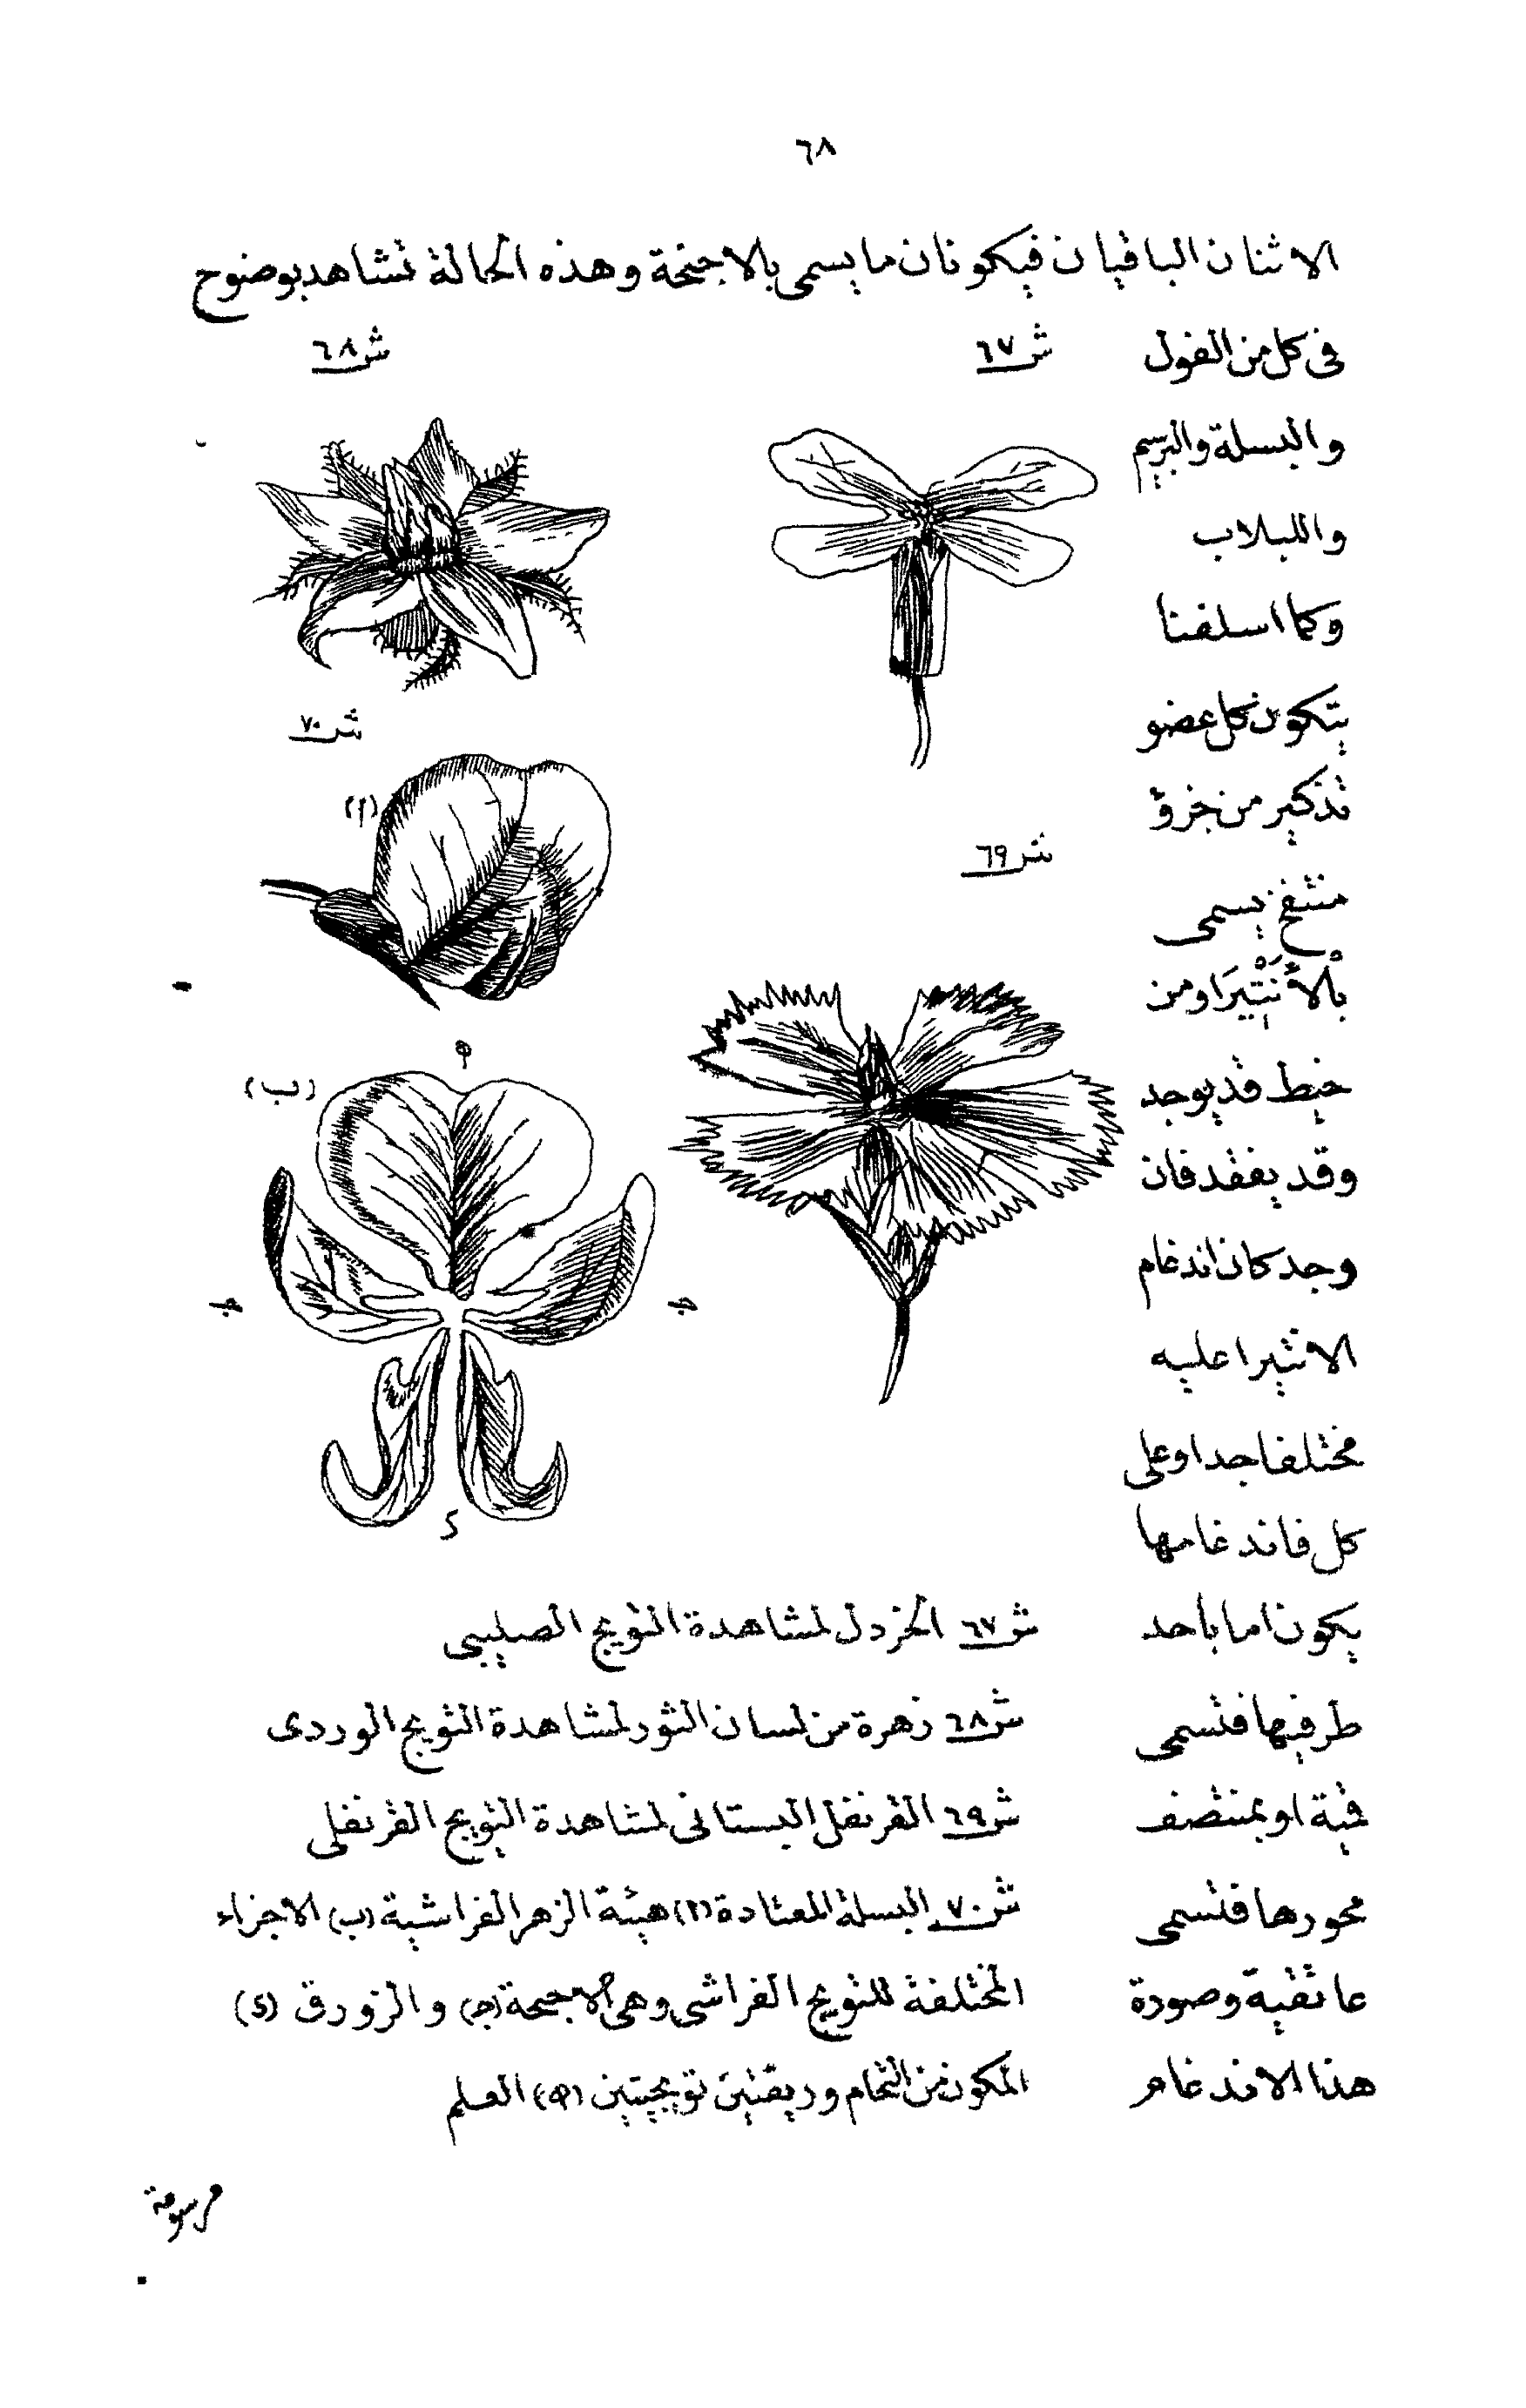 ٦٨
الاثنان الباقيان فيكونان ما يسمى بالاجنحة وهذه الحالة تشاهد بوضوح
فى كل من الفول
والبسلة والبرسيم
واللبلاب
وكما اسلفنا
يتكون كل عضو
تذكير من جزؤ
منتفخ يسمى
بالأنْتِيَرا ومن
خيط قد يوجد
وقد يفقد فان
وجد كان اندغام
الانتيرا عليه
مختلفا جدا وعلى
كل فاندغامها
يكون اما بأحد
طرفيها فتسمى
قمية او بمنتصف
محورها فتسمى
عانقية وصورة
هذا الاندغام
ش٦٧
ش٦٨
ش٦٩
ش٧٠
(١)
(ب)
ج
ج
د
ش٦٧ الخردل لمشاهدة التويج الصليبى
ش٦٨ زهرة من لسان الثور لمشاهدة التويج الوردى
ش٦٩ القرنفل البستانى لمشاهدة التويج القرنفلى
ش٧٠ البسلة المعتادة (١) هيئة الزهر الفراشية (ب) الاجزاء
المختلفة للتويج الفراشى وهى الاجنحة (ج) والزورق (د)
المكون من التحام وريقتين تويجيتين (ه) العلم
مرسومة